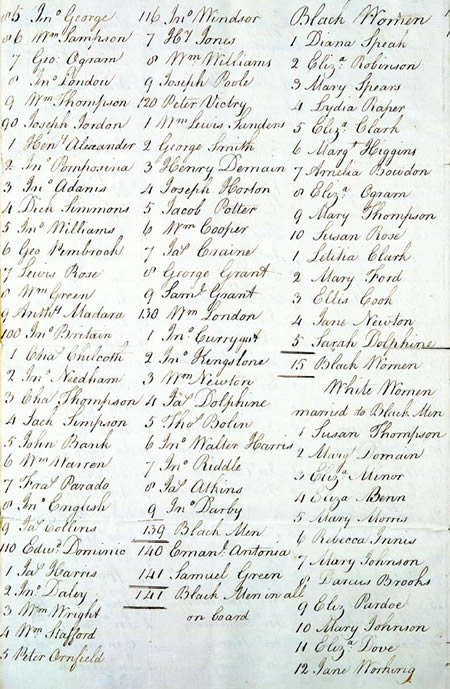 85 Jno George
86 Wm Sampson
7 Geo: Ogram
8 Jno London
9 Wm Thompson
90 Joseph Jordon
1 Henry Alexander
2 Jno Pomposina
3 Jno Adams
4 Dick Simmons
5 Jno Williams
6 Geo Pembrook
7 Lewis Rose
8 Wm Green
9 Anthy Madara
100 Jno Britain
1 Chas Chilcoth
2 Jno Needham
3 Chas Thompson
4 Jack Simpson
5 John Bank
6 Wm Warren
7 Fras Parado
8 Jno English
9 Jas Collins
110 Edwd Dominic
1 Jas Harris
2 Jno Daley
3 Wm Wright
4 Wm Stafford
5 Peter Ornfield
116 Jno Windsor
7 Hy Jones
8 Wm Williams
9 Joseph Poole
120 Peter Viotry
1 Wm Lewis Sanders
2 George Smith
3 Henry Demain
4 Joseph Horton
5 Jacob Potter
6 Wm Cooper
7 Jas Craine
8 George Grant
9 Saml Grant
130 Wm London
1 Jno
2 Jno Kingstone
3 Wm Newton
4 Jas Dolphine
5 Thos Bolin
6 Jno Walter Harris
7 Jno Riddle
8 Jas Athins
9 Jno Darby
139 Black Men
140 Emanl Antonia
141 Samuel Green
141 Black Men in all
on board
Black Women
1 Diana Speak
2 Eliza Robinson
3 Mary Spears
4 Lydia Raper
5 Eliza Clark
6 Margt Higgins
7 Amelia Bowdon
8 Eliza Ogram
9 Mary Thompson
10 Susan Rose
1 Letitia Clark
2 Mary Ford
3 Ellis Cook
4 Jane Newton
5 Sarah Dolphine
15 Black Women
White Women
married to Black Men
1 Susan Thompson
2 Margt Domain
3 Eliza Minor
4 Eliza Benn
5 Mary Morris
6 Rebecca Innis
7 Mary Johnson
8 Darcus Brooks
9 Eliz Pardoe
10 Mary Johnson
11 Eliza Dove
12 Jane Working